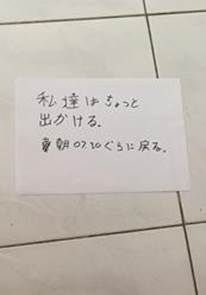 私達はちょっと
出かける.
朝07.30ぐらに戻る.